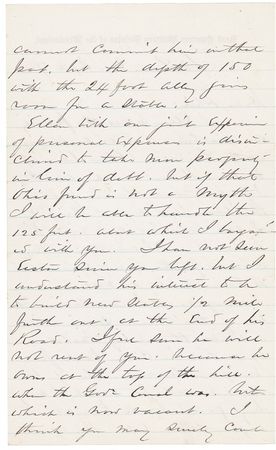 cannot commit him in that
part, but the depth of 150
with the 24 foot alley gives
room for a stable.
Ellen with our joint expense
of personal expenses is disin-
clined to take more property
in lieu of debt. but if that
Ohio fund is not a myth
I will be able to handle the
125 feet about which I
with you. I have not seen
since you left. but I
understand his interest to be
to build new Stables 1/2 mile
further out. at the End of his
Road. If so soon he will
not rent of you. because he
owns at the top of the hill.
when the Govt Corral was. but
which is now vacant. I
think you may surely